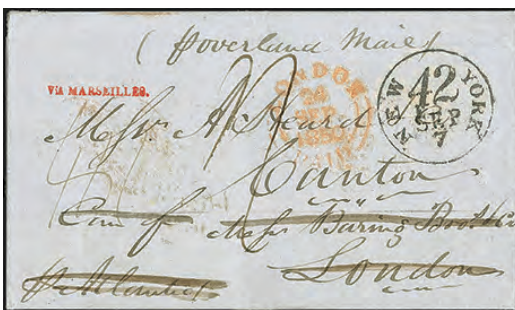 ( p overland Mail )
VIA MARSEILLES.
LONDON
24
NEW YORK
42
SEP
7
Messrs A Heard
Canton
Care of Messrs Baring Brothers
London
p Atlantic